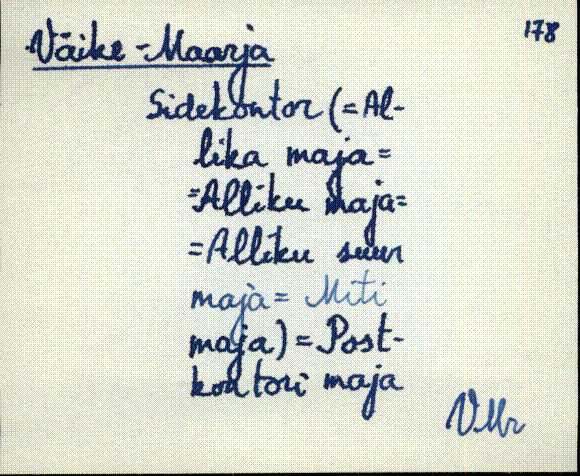 Väike-Maarja 178
Sidekontor (= Al-
lika maja =
= Alliku maja =
= Alliku suur
maja = Miti
maja) = Post-
kontori maja
VMr